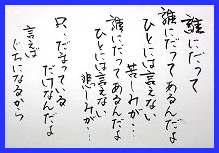 誰にだって
誰にだってあるんだよ
ひとには言えない
苦しみが…
誰にだってあるんだよ
ひとには言えない
悲しみが…
只、だまっている
だけなんだよ
言えば
ぐちになるから